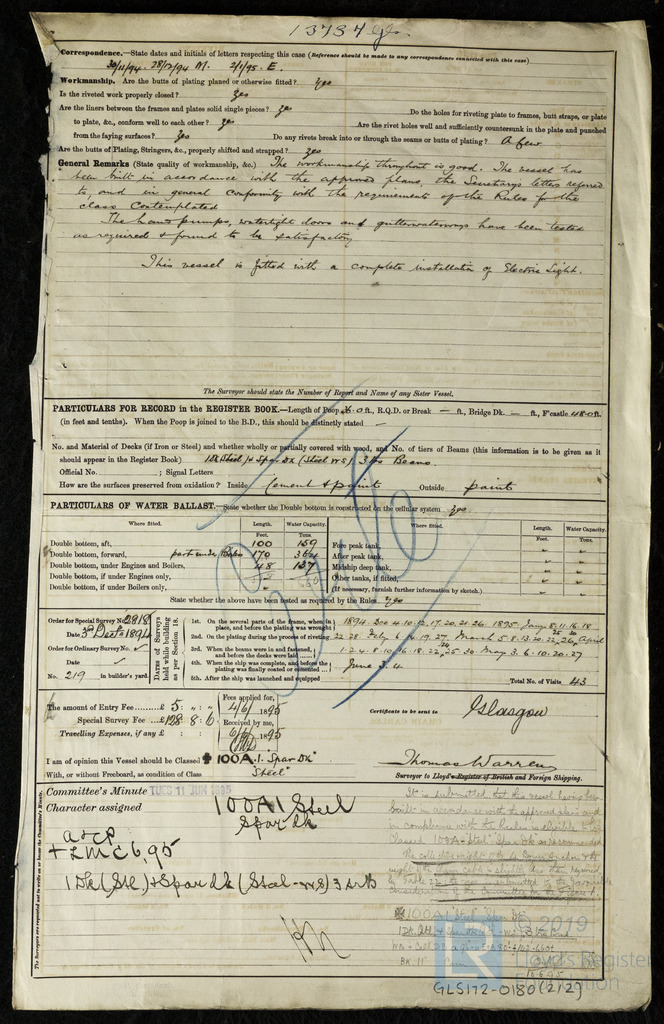 13734 Gls.
Correspondence.—State dates and initials of letters respecting this case (Reference should be made to any correspondence connected with this case)
30/11/94. 28/12/94 M. 2/1/95. E.
Workmanship. Are the butts of plating planed or otherwise fitted? yes
Is the riveted work properly closed? yes
Are the liners between the frames and plates solid single pieces? ye Do the holes for riveting plate to frames, butt straps, or plate
to plate, &c., conform well to each other? yes Are the rivet holes well and sufficiently countersunk in the plate and punched
from the faying surfaces? yes Do any rivets break into or through the seams or butts of plating? A few
Are the butts of Plating, Stringers, &c., properly shifted and strapped? yes
General Remarks (State quality of workmanship, &c.) The workmanship throughout is good. The vessel has
been built in accordance with the approved plans, the Secretary's letters referred
to, and in general conformity with the requirements of the Rules for the
class contemplated
The hand pumps, watertight doors and gutterwaterways have been tested
as required & found to be satisfactory
This vessel is fitted with a complete installation of Electric Light.
The Surveyor should state the Number of Report and Name of any Sister Vessel.
PARTICULARS FOR RECORD in the REGISTER BOOK.—Length of Poop ft., R.Q.D. or Break — ft., Bridge Dk. — ft., F'castle 48·0 ft.
(in feet and tenths). When the Poop is joined to the B.D., this should be distinctly stated —
No. and Material of Decks (if Iron or Steel) and whether wholly or partially covered with wood, and No. of tiers of Beams (this information is to be given as it
should appear in the Register Book) 1 Dk (Steel) & Spar Dk (Steel WS) 3 trs Beams.
Official No. ; Signal Letters
How are the surfaces preserved from oxidation? Inside Cement & paint Outside paint
PARTICULARS OF WATER BALLAST.—State whether the Double bottom is constructed on the cellular system yes
Where fitted. Length. Water Capacity. Where fitted. Length. Water Capacity.
Feet. Tons. Feet. Tons.
Double bottom, aft, 100 159 Fore peak tank,
Double bottom, forward, part under Boilers 170 364 After peak tank,
Double bottom, under Engines and Boilers, 48 137 Midship deep tank,
Double bottom, if under Engines only, Other tanks, if fitted,
Double bottom, if under Boilers only, (If necessary, furnish further information by sketch.)
State whether the above have been tested as required by the Rules yes
Order for Special Survey No. 2918
Date 3 Decr 1894
Order for Ordinary Survey No.
Date
No. 219 in builder's yard.
Dates of Surveys held while building as per Section 18.
1st. On the several parts of the frame, when in place, and before the plating was wrought 1894. Dec 4.10.12.17.20.21.26. 1895 Jany 8.11.16.18
2nd. On the plating during the process of riveting 22.28. Feby 6.14.19.27. March 5.8.13.20.22.25.26. April
3rd. When the beams were in and fastened, and before the decks were laid 1.2.4.8.10.16.18.22.24.25.30 May 3.6.10.20.27
4th. When the ship was complete, and before the plating was finally coated or cemented June 3.4
5th. After the ship was launched and equipped
Total No. of Visits 43
The amount of Entry Fee £ 5 : " : "
Special Survey Fee £128 : 8 : 6
Travelling Expenses, if any £ : :
Fees applied for, 4/6/1895
Received by me, 6/6/1895
Certificate to be sent to Glasgow
I am of opinion this Vessel should be Classed ✠ 100A.1. Spar Dk"
With, or without Freeboard, as condition of Class "Steel"
Thomas Warren
Surveyor to Lloyd's Register of British and Foreign Shipping.
The Surveyors are requested not to write on or below the Committee's Minute.
Committee's Minute TUES 11 JUN 1895
Character assigned 100A1 Steel
Spar dk
a & cp
+ LMC 6,95
1 Dk (Stl) + Spar dk (Steel - ws) 3 trB
It is submitted that this vessel having been
built in accordance with the approved plans and
in compliance with the Rules is eligible to be
Classed 100A "Steel" "Spar Dk" as recommended
100A1 "Steel" "Spar Dk"
© 2019
Lloyd's Register
Foundation
LR
GLS172-0180(2/2)